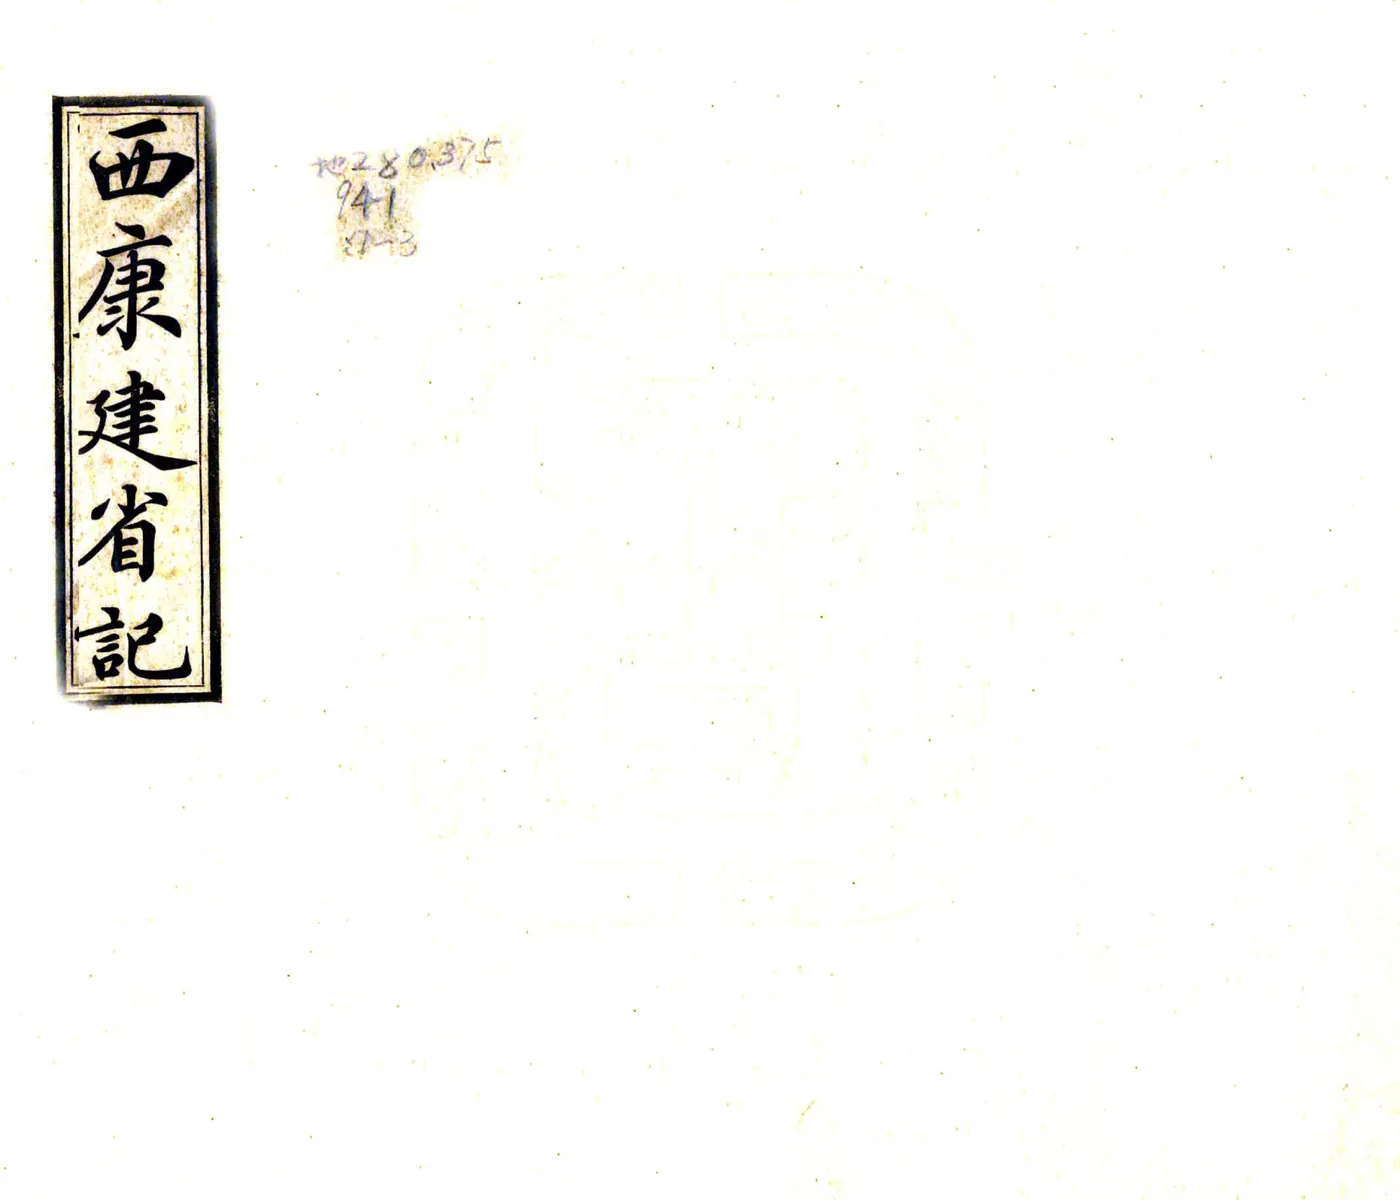 西康建省記
地280.375
94-1